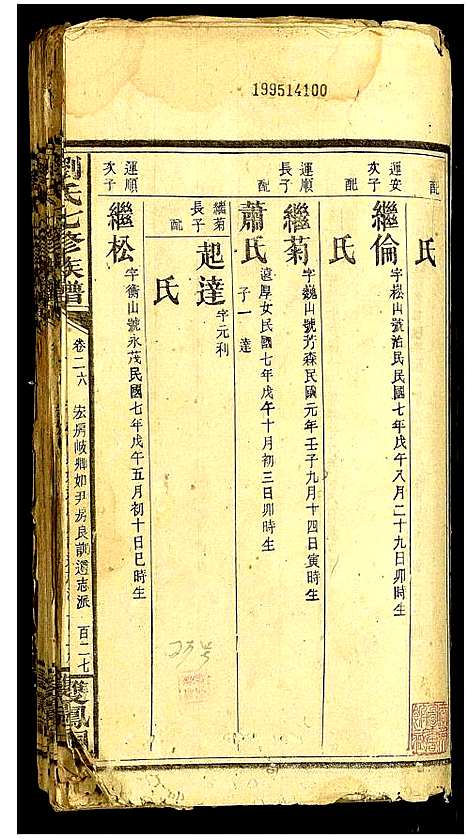 199514100
配
氏
運安
次子
繼倫
字松山號治民民國七年戊午八月二十九日卯時生
配
氏
運順
長子
繼菊
字巍山號芳森民國元年壬子九月十四日寅時生
配
蕭氏
遠厚女民國七年戊午十月初三日卯時生
子一達
繼菊
長子
起達
字元利
配
氏
運順
次子
繼松
字衡山號永茂民國七年戊午五月初十日巳時生
劉氏七修族譜
卷二六
宏房岐卿如尹房良訓遷志派
百二七
雙鳳